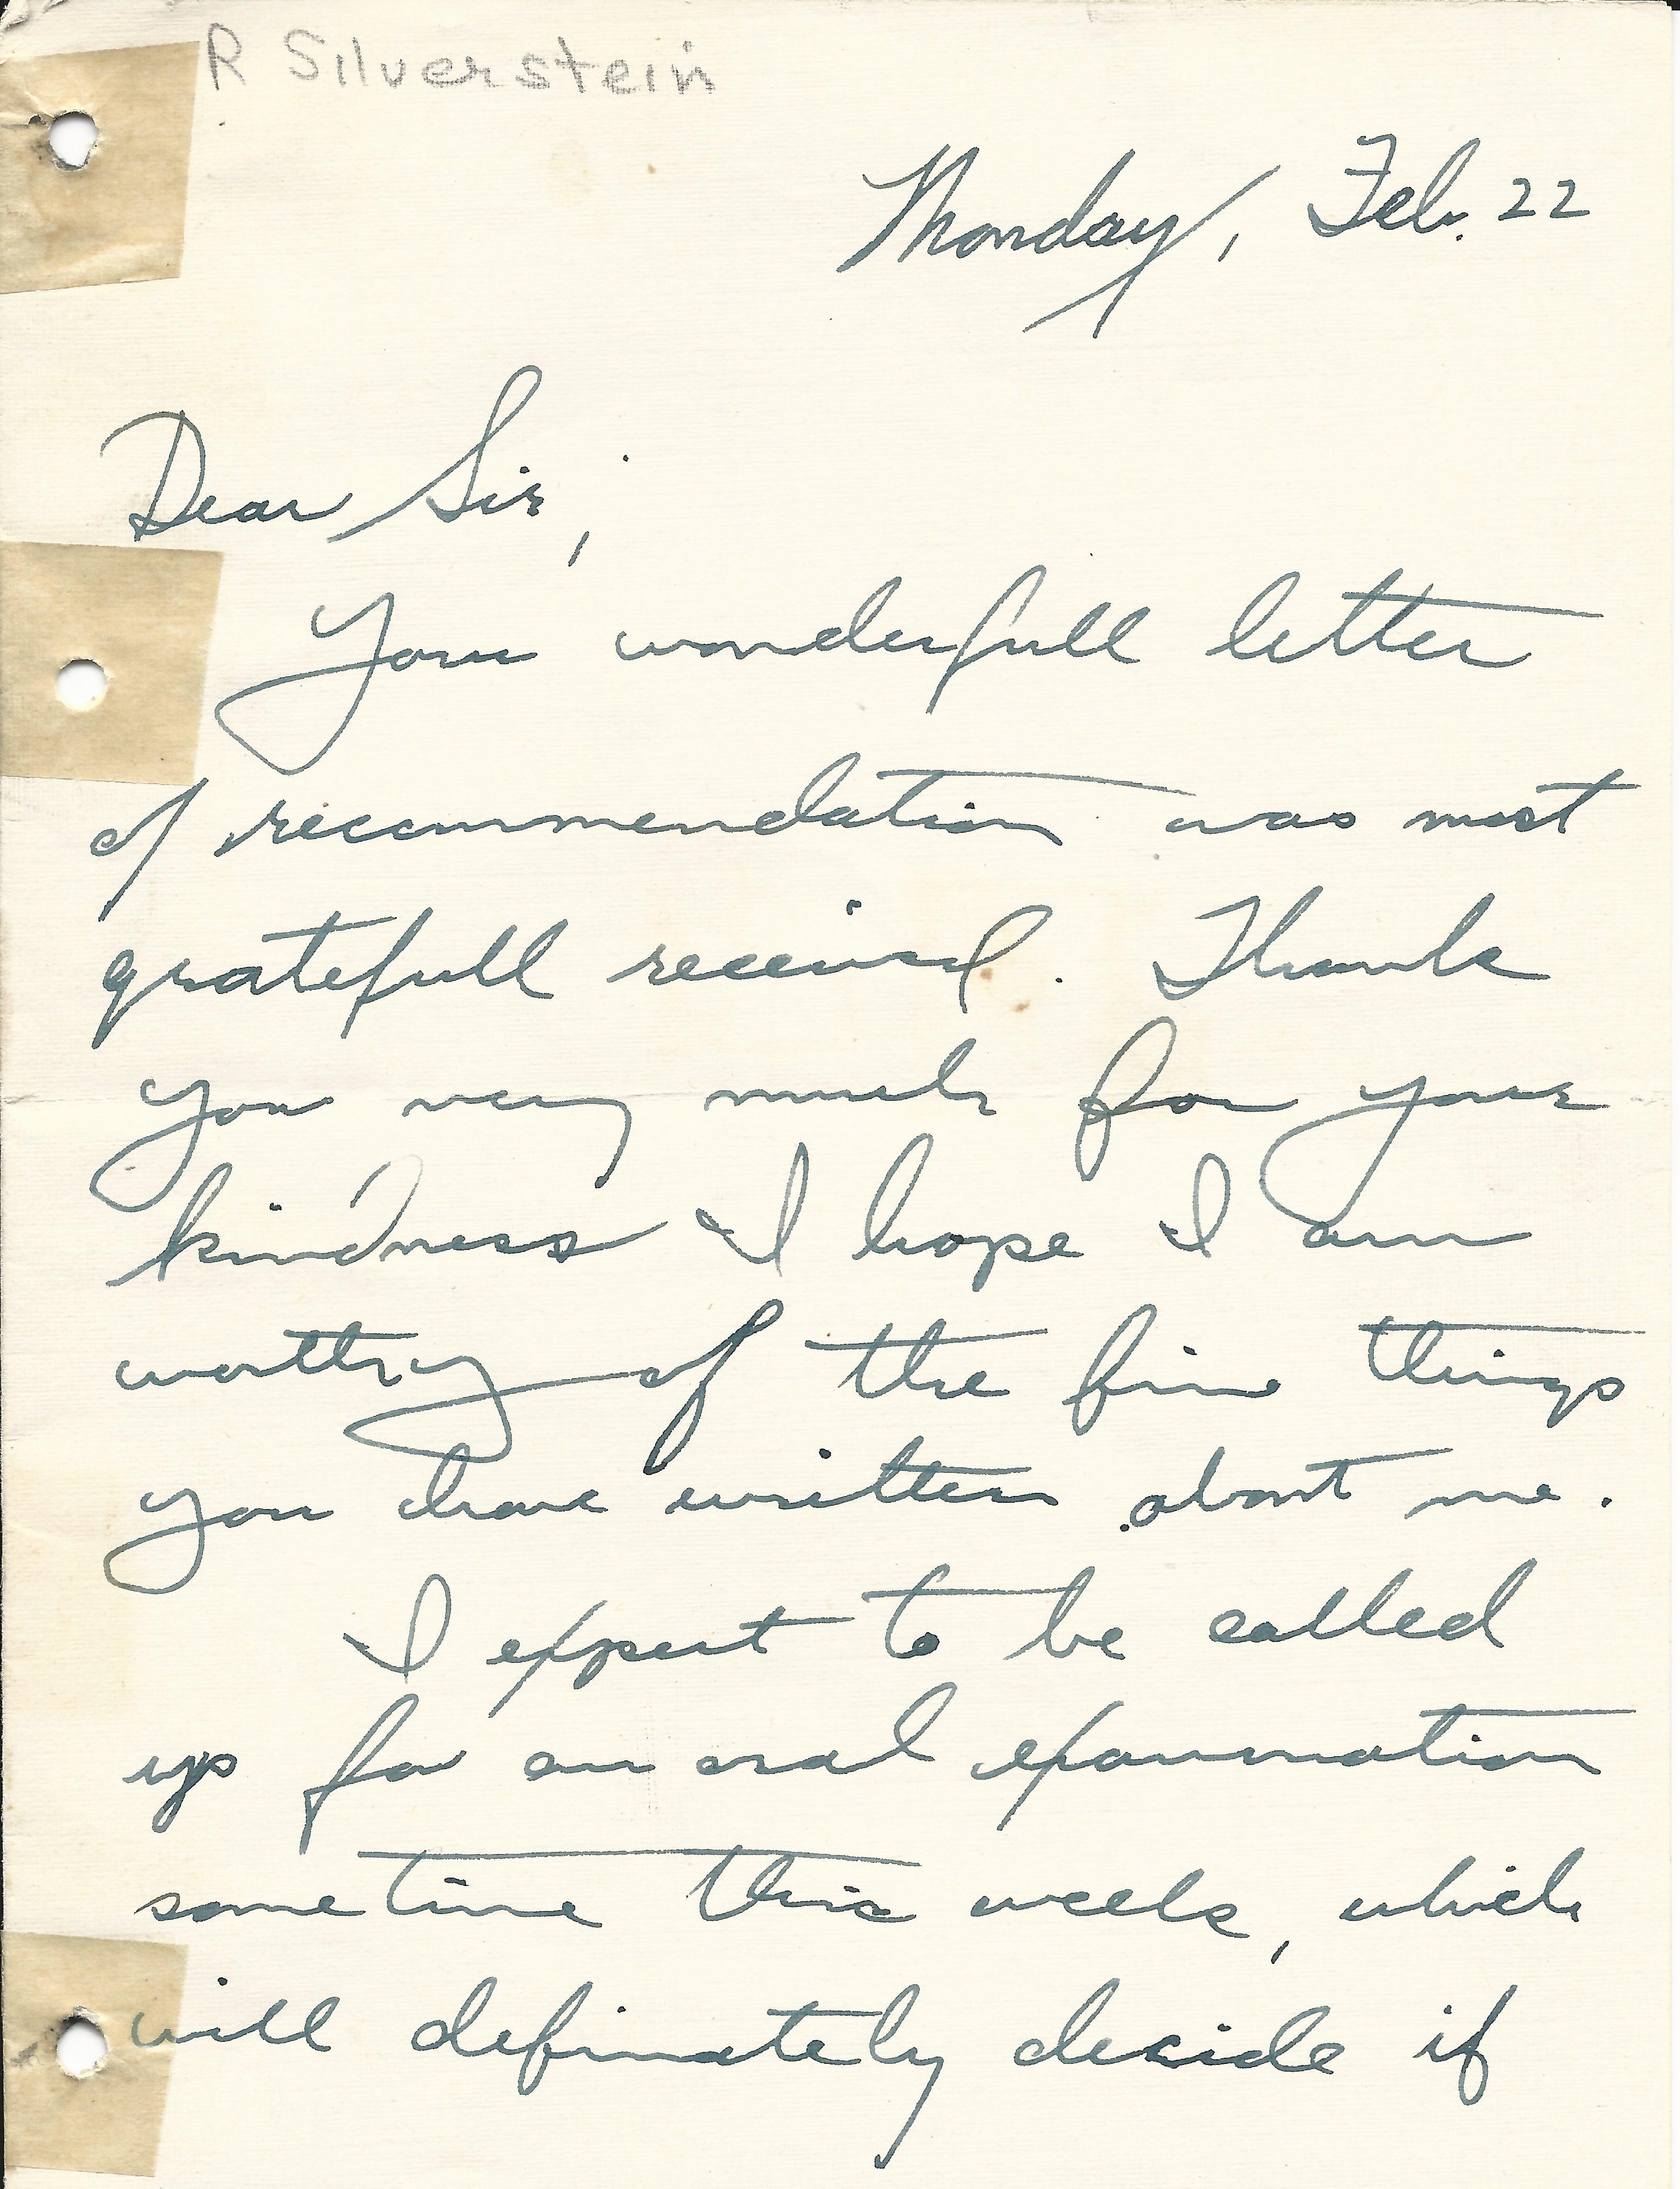 R Silverstein
Monday, Feb. 22
Dear Sir,
Your wonderfull letter
of recommendation was most
gratefull received. Thank
you very much for your
kindness I hope I am
worthy of the fine things
you have written about me.
I expect to be called
up for an oral examination
sometime this week, which
will definately decide if